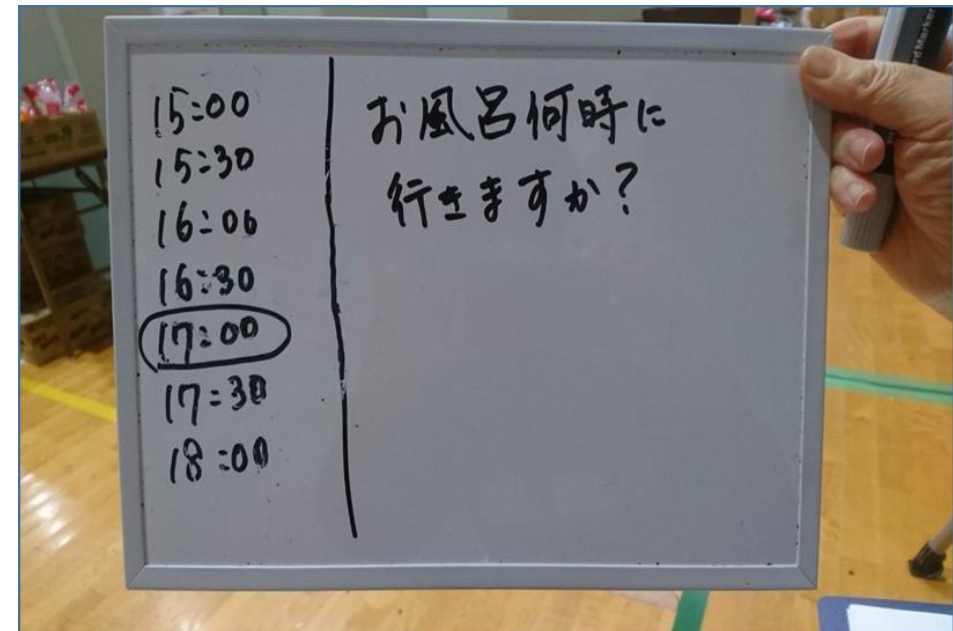 15:00
15:30
16:00
16:30
17:00
17:30
18:00
お風呂何時に
行きますか?